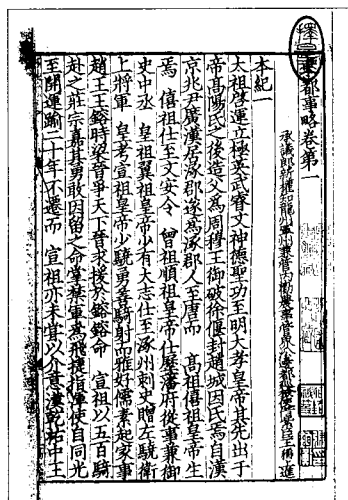 東都事略卷第一
承議郎新權知龍州軍州兼管內勸農事管界沿邊都巡檢使借紫臣王稱進
本紀一
太祖啓運立極英武睿文神德聖功至明大孝皇帝其先出于
帝高陽氏之後造父為周穆王御破徐偃封趙城因氏焉自漢
京兆尹廣漢居涿郡遂為涿郡人至唐而 高祖僖祖皇帝生
焉 僖祖仕至文安令 曾祖順祖皇帝仕歷藩府從事兼御
史中丞 皇祖翼祖皇帝少有大志仕至涿州刺史贈左驍衛
上將軍 皇考宣祖皇帝少驍勇喜騎射而雅好儒素起家事
趙王王鎔時梁晉爭天下晉求援於鎔鎔命 宣祖以五百騎
赴之莊宗嘉其勇敢因留之命掌禁軍為飛捷指揮使自同光
至開運踰二十年不遷而 宣祖亦未嘗以介意漢乾祐中王